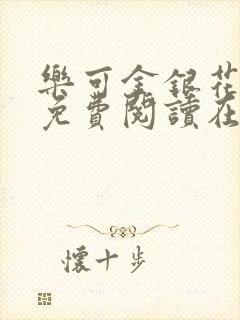 樂可金銀花
免費閱讀在
懷十步